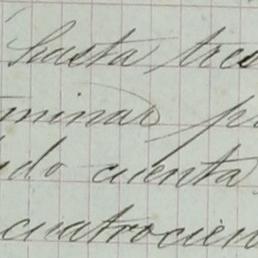 hasta tres
minar p
do cuenta
cuatrocien